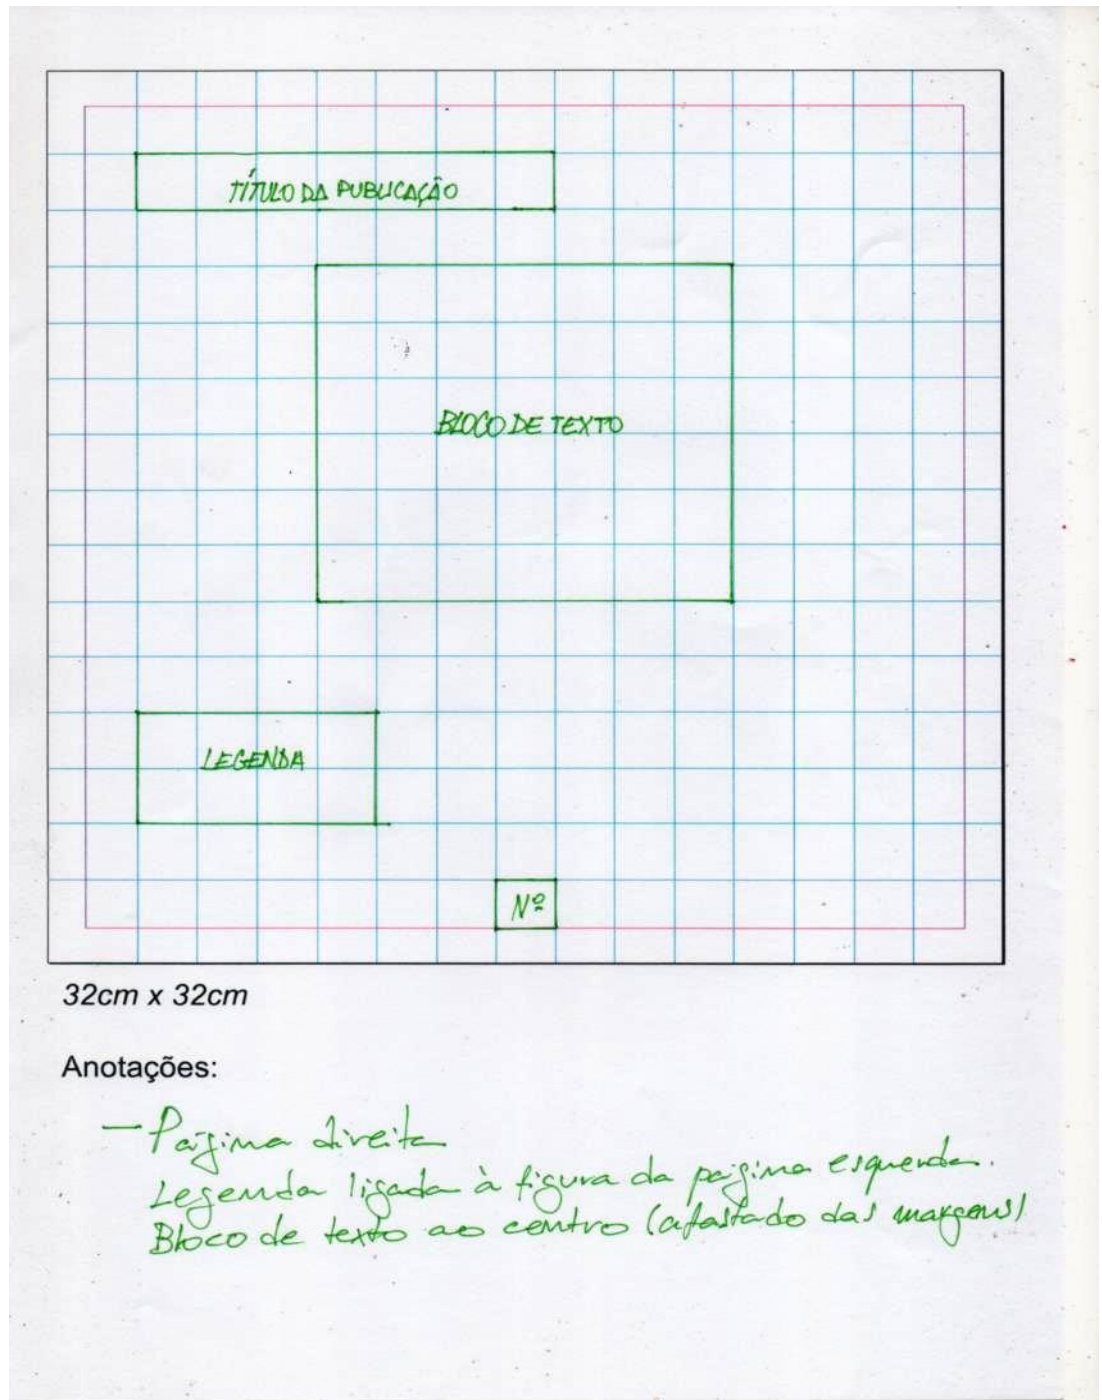 TÍTULO DA PUBLICAÇÃO
BLOCO DE TEXTO
LEGENDA
Nº
32cm x 32cm
Anotações:
— Página direita
Legenda ligada à figura da página esquerda.
Bloco de texto ao centro (afastado das margens)